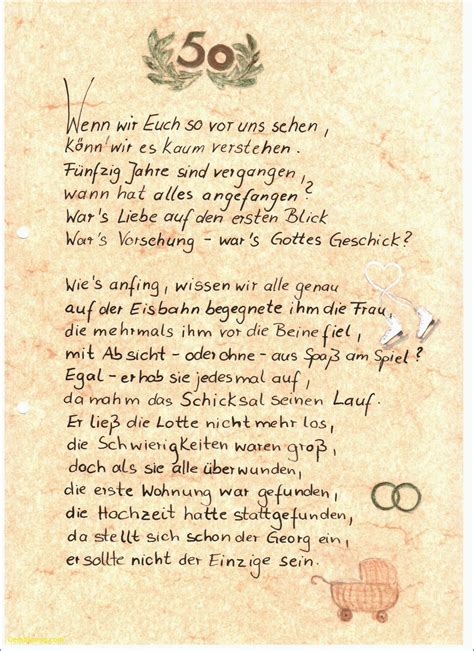 50
Wenn wir Euch so vor uns sehen,
könn' wir es kaum verstehen.
Fünfzig Jahre sind vergangen,
wann hat alles angefangen?
War's Liebe auf den ersten Blick
War's Vorsehung - war's Gottes Geschick?
Wie's anfing, wissen wir alle genau
auf der Eisbahn begegnete ihm die Frau,
die mehrmals ihm vor die Beine fiel,
mit Absicht - oder ohne - aus Spaß am Spiel?
Egal - er hob sie jedesmal auf,
da nahm das Schicksal seinen Lauf.
Er ließ die Lotte nicht mehr los,
die Schwierigkeiten waren groß,
doch als sie alle überwunden,
die erste Wohnung war gefunden,
die Hochzeit hatte stattgefunden,
da stellt sich schon der Georg ein,
er sollte nicht der Einzige sein.